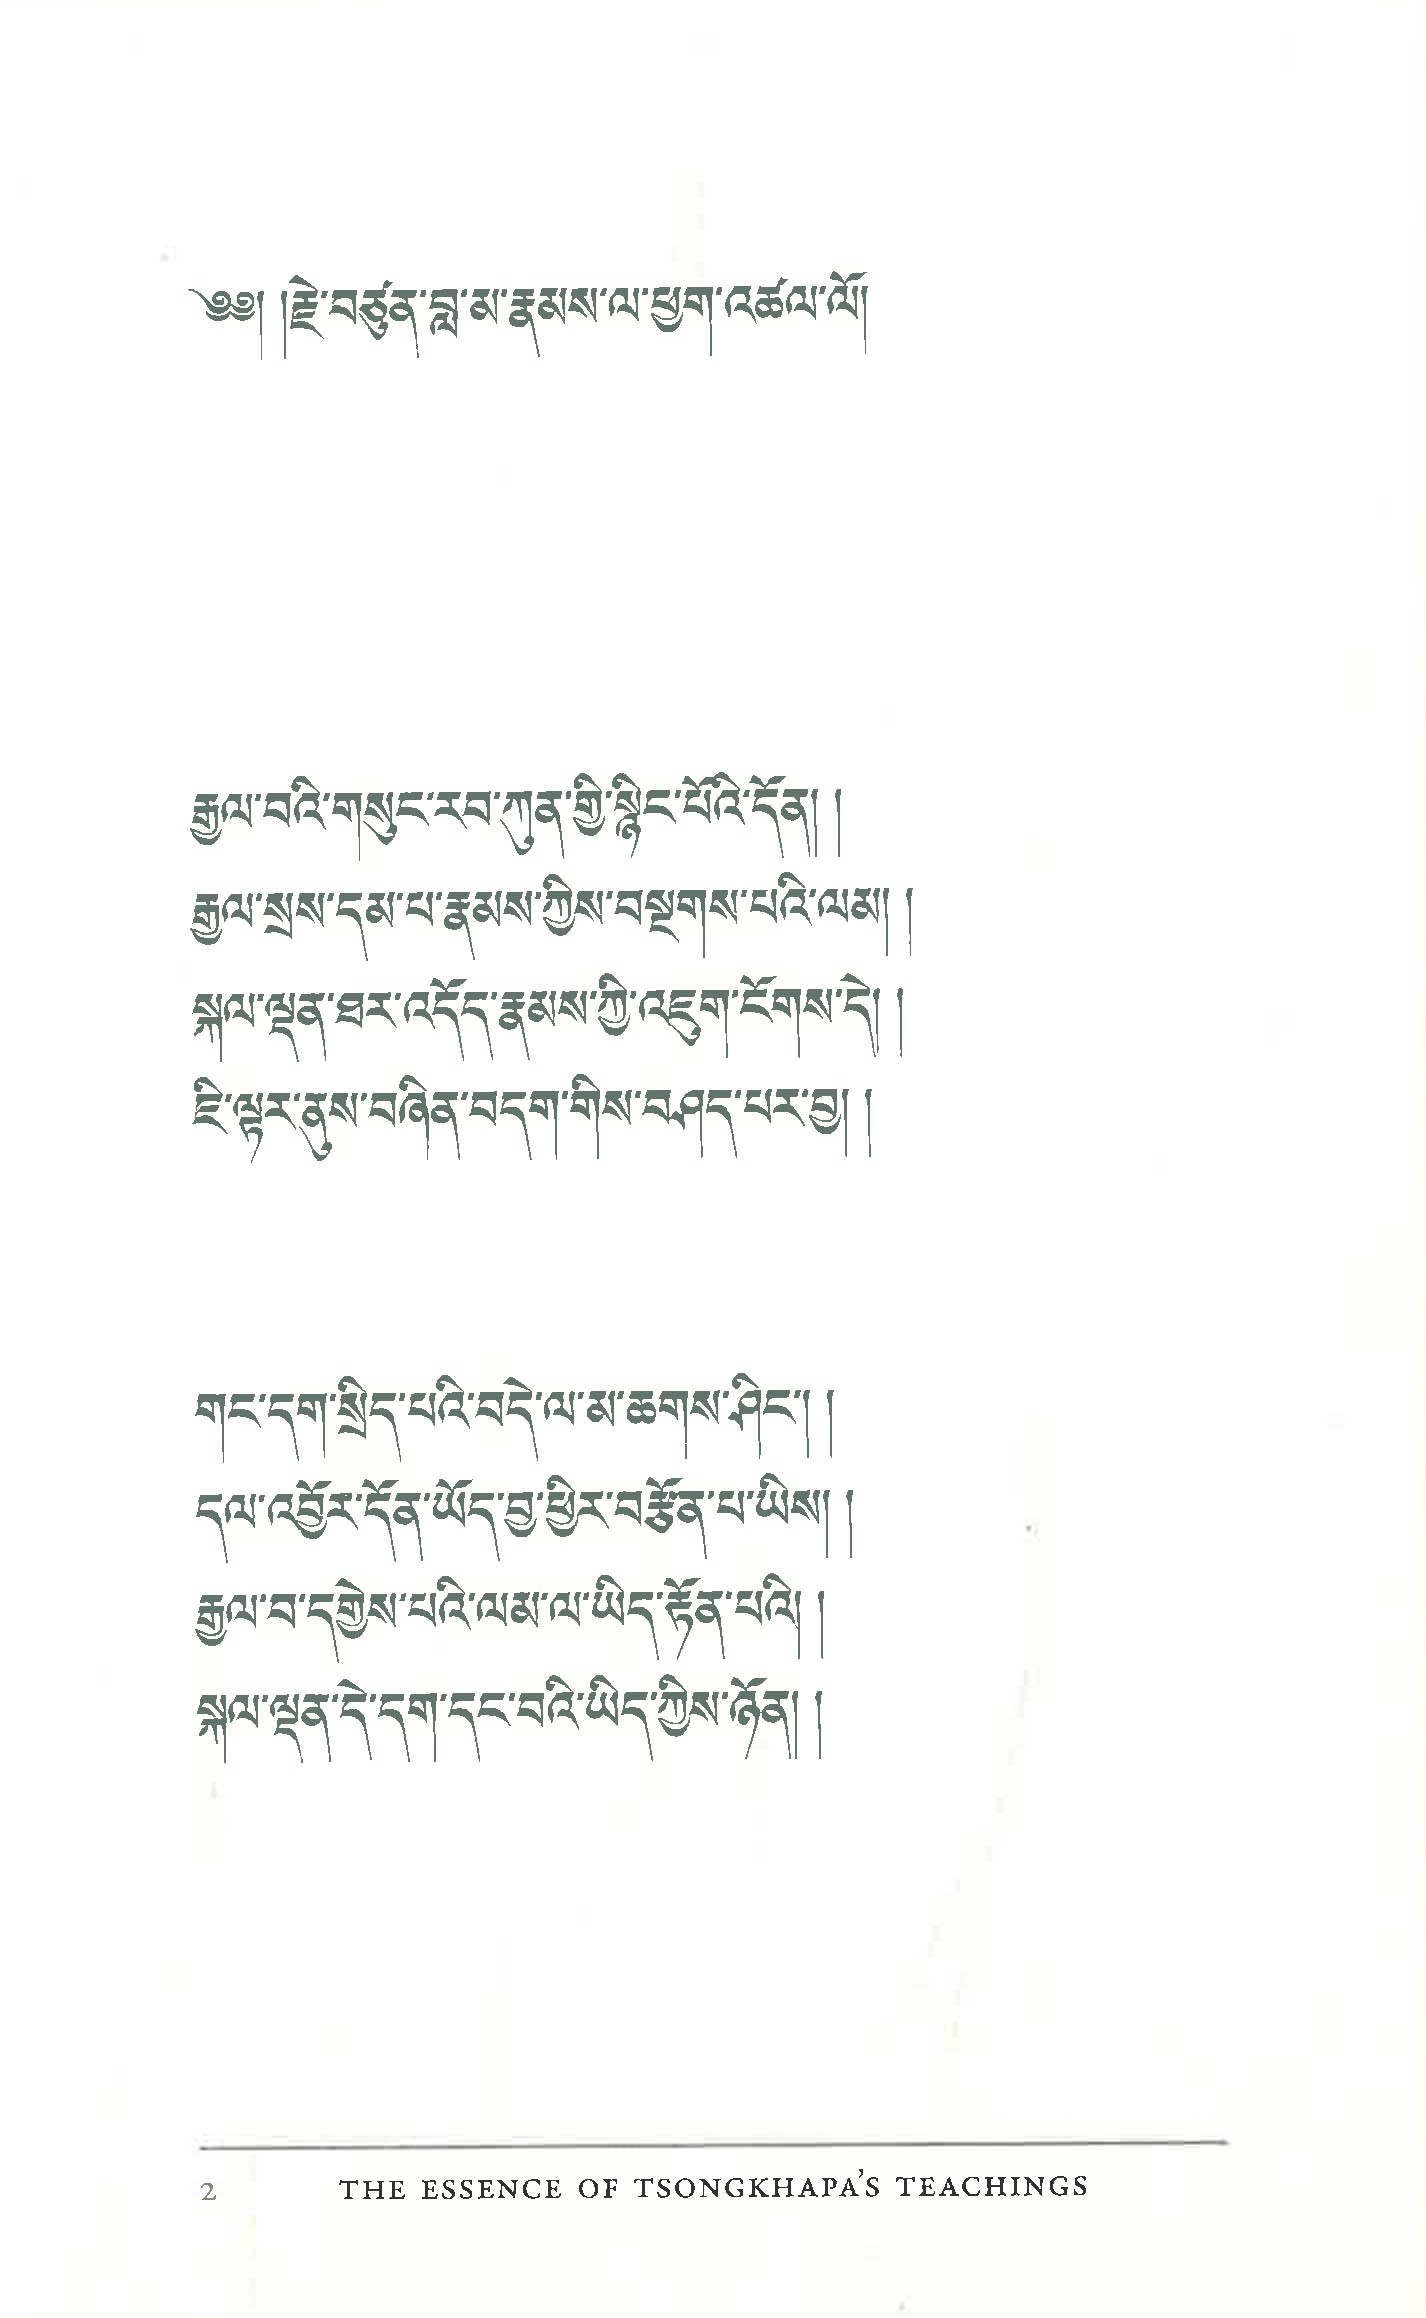 ༄༅། །རྗེ་བཙུན་བླ་མ་རྣམས་ལ་ཕྱག་འཚལ་ལོ།
རྒྱལ་བའི་གསུང་རབ་ཀུན་གྱི་སྙིང་པོའི་དོན། །
རྒྱལ་སྲས་དམ་པ་རྣམས་ཀྱིས་བསྔགས་པའི་ལམ། །
སྐལ་ལྡན་ཐར་འདོད་རྣམས་ཀྱི་འཇུག་ངོགས་དེ། །
ཇི་ལྟར་ནུས་བཞིན་བདག་གིས་བཤད་པར་བྱ། །
གང་དག་སྲིད་པའི་བདེ་ལ་མ་ཆགས་ཤིང་། །
དལ་འབྱོར་དོན་ཡོད་བྱ་ཕྱིར་བརྩོན་པ་ཡིས། །
རྒྱལ་བ་དགྱེས་པའི་ལམ་ལ་ཡིད་རྟོན་པའི། །
སྐལ་ལྡན་དེ་དག་དང་བའི་ཡིད་ཀྱིས་ཉོན། །
2 THE ESSENCE OF TSONGKHAPA’S TEACHINGS